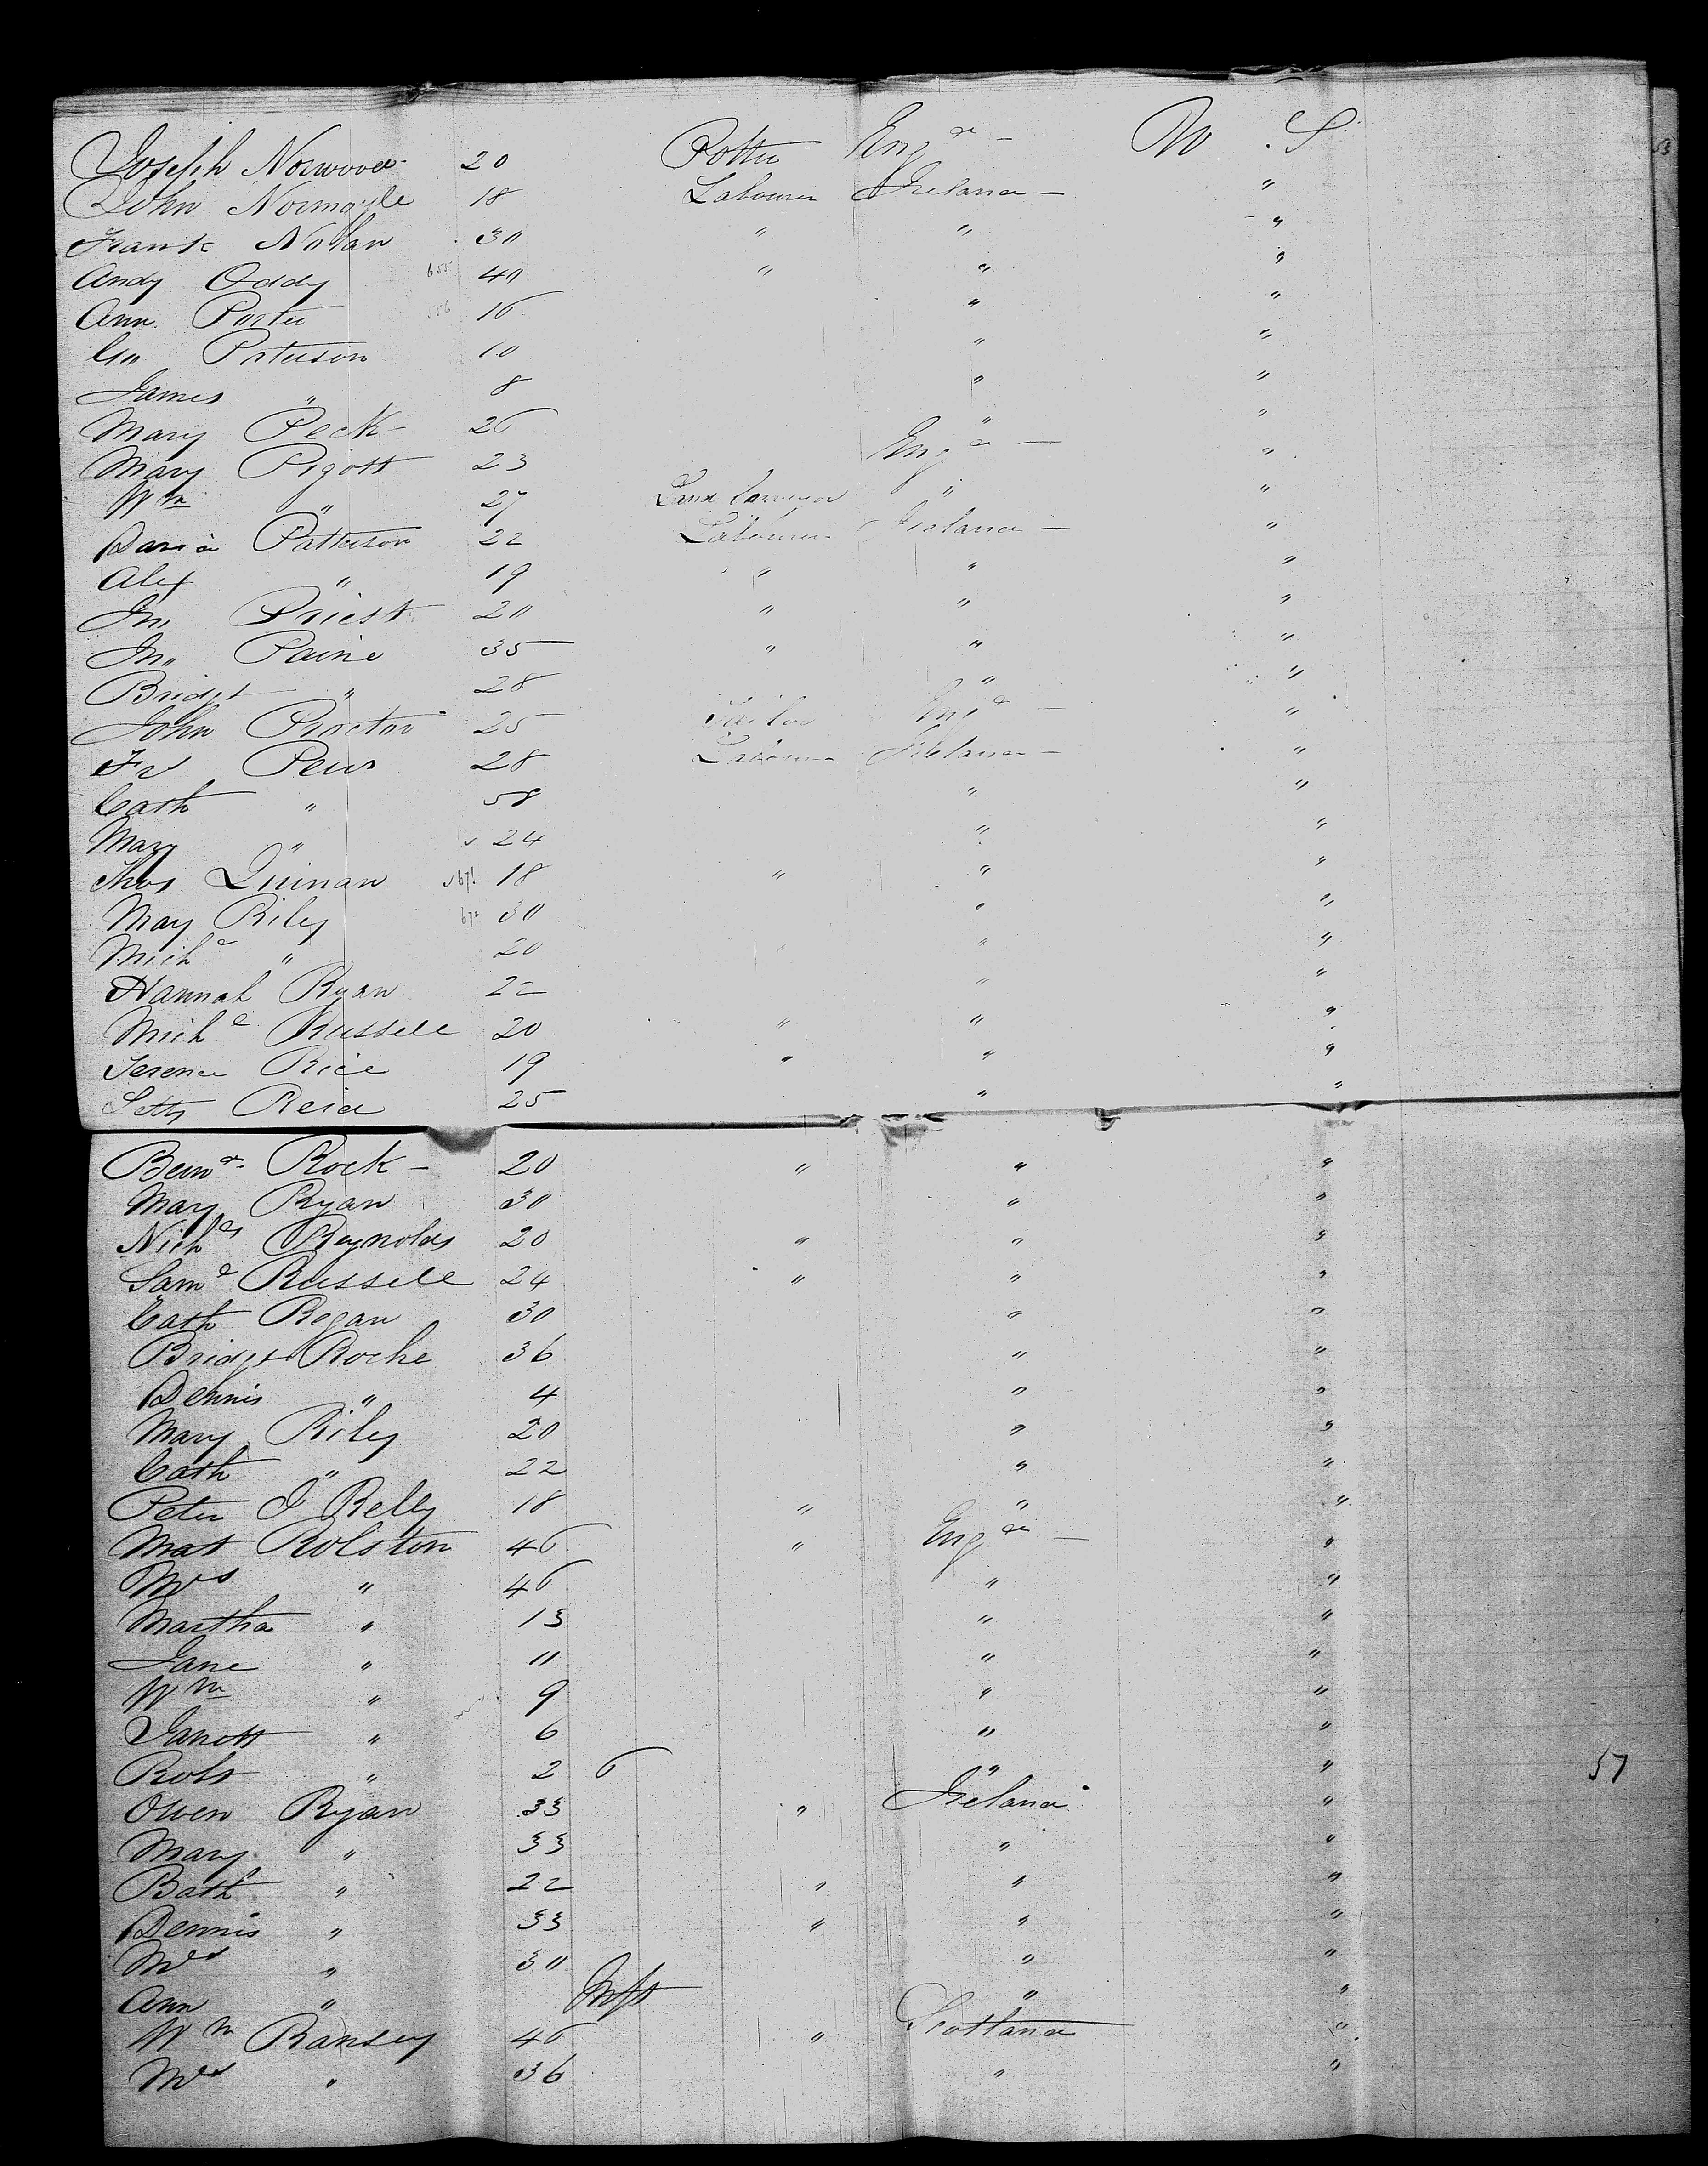 Joseph Norwood 20 Potter Engd — U. S.
John Normoyle 18 Labourer Ireland — "
Frank Nolan 30 " " "
Andy Oddy 655 40 " " "
Ann Porter 16 " "
Geo Paterson 10 " "
James " 8 " "
Mary Peck 26 " "
Mary Pigott 23 Engd — "
Wm " 27 Land " "
David Patterson 22 Labourer Ireland — "
Alex " 19 " " "
Jno Priest 20 " " "
Jno Paine 35 " " "
Bridgt " 28 " "
John Proctor 25 Tailor Engd — "
Peur 28 Labourer Ireland — "
Cath " 58 " "
Mary " 24 " "
Thos Quinan 671 18 " " "
May Riley 672 30 " "
Michl " 20 " " "
Hannah Ryan 22 " "
Michl Russell 20 " " "
Terence Rice 19 " " "
Letty Reid 25 " "
Bernd Rock 20 " " "
Mary Ryan 30 " "
Nichs Reynolds 20 " " "
Saml Russell 24 " " "
Cath Regan 30 " "
Bridgt Roche 36 " "
Dennis " 4 " "
Mary Riley 20 " "
Cath " 22 " "
Peter J Relly 18 " " "
Mat Rolston 46 " Engd — "
Mrs " 46 " "
Martha " 13 " "
Jane " 11 " "
Wm " 9 " "
Janott " 6 " "
Robt " 2 6 " " 57
Owen Ryan 33 " Ireland "
Mary " 33 " "
Bath " 22 " " "
Dennis " 33 " " "
Mrs " 30 " "
Ann " Inft " "
Wm Ransey 46 " Scotland "
Mrs " 36 " "